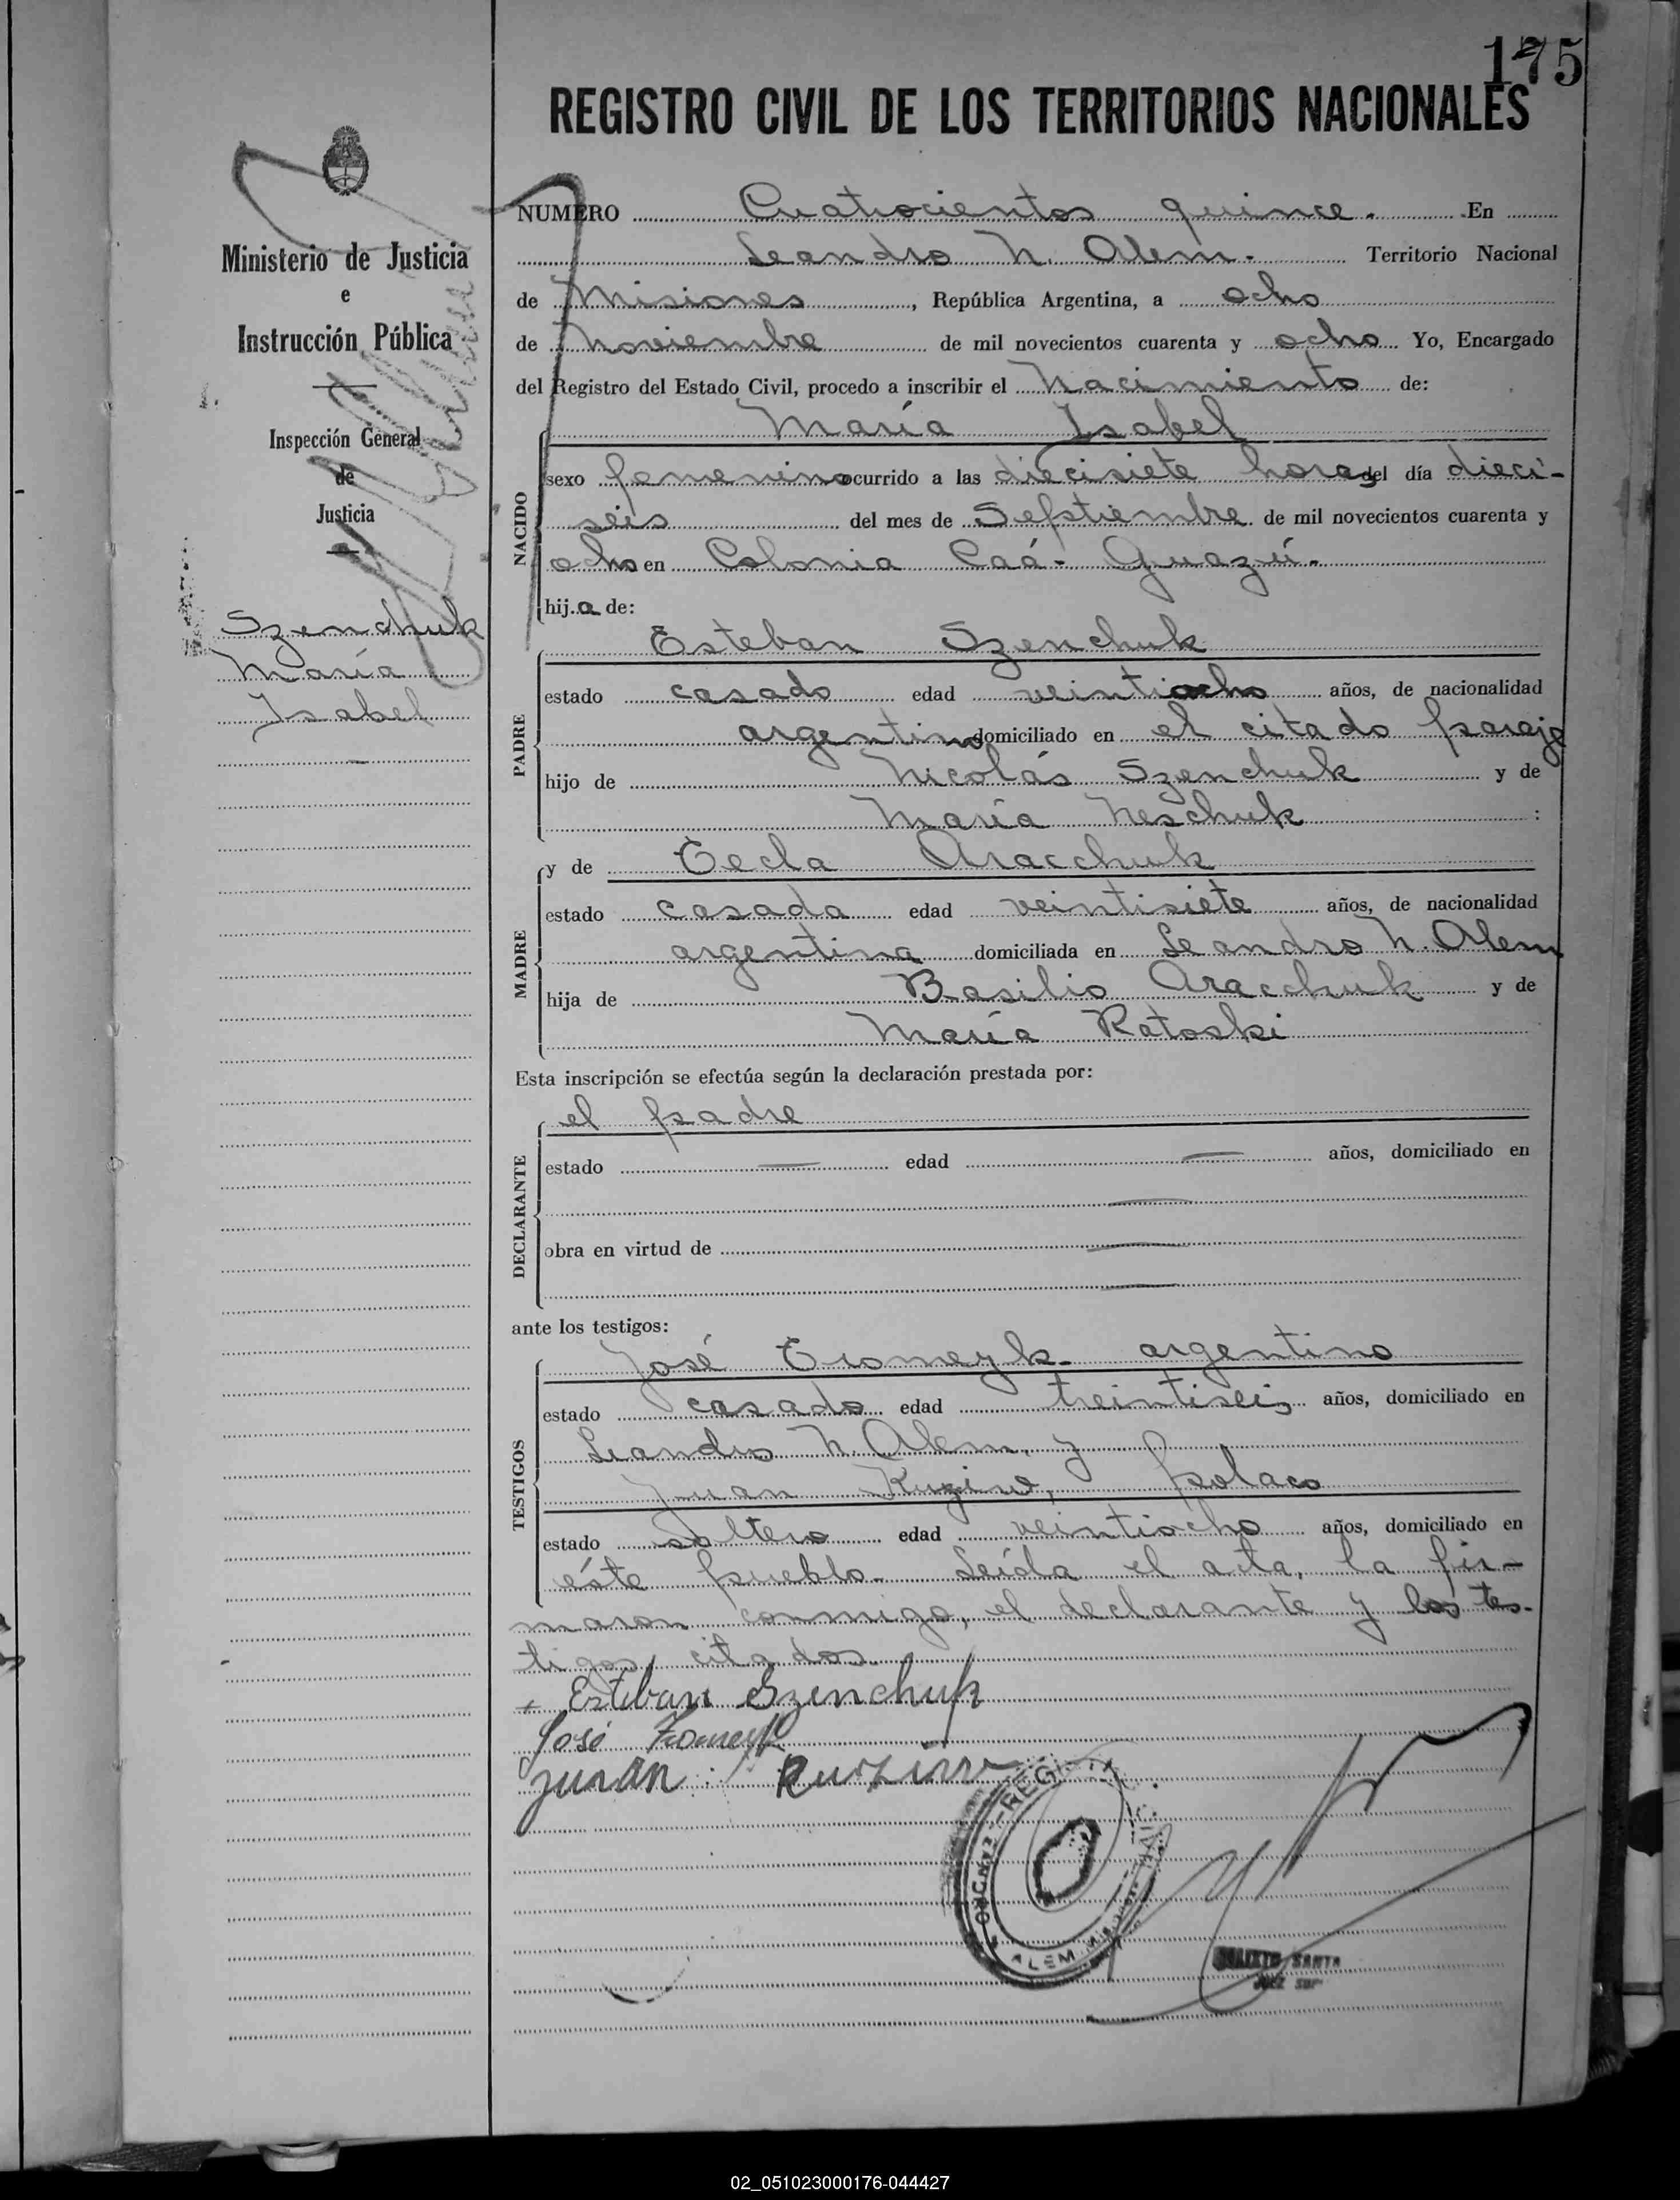 175
REGISTRO CIVIL DE LOS TERRITORIOS NACIONALES
Ministerio de Justicia
e
Instrucción Pública
Inspección General
de
Justicia
Szenchuk
María
Isabel
NUMERO Cuatrocientos quince. En
Leandro N. Alem. Territorio Nacional
de Misiones, República Argentina, a ocho
de Noviembre de mil novecientos cuarenta y ocho Yo, Encargado
del Registro del Estado Civil, procedo a inscribir el Nacimiento de:
NACIDO
María Isabel
sexo femenino ocurrido a las diecisiete horas del día dieci-
séis del mes de Septiembre de mil novecientos cuarenta y
ocho en Colonia Caá-Guazú.
hij.a de:
PADRE
Esteban Szenchuk
estado casado edad veintiocho años, de nacionalidad
argentino domiciliado en el citado paraje
hijo de Nicolás Szenchuk y de
María Neschuk :
MADRE
y de Tecla Aracchuk
estado casada edad veintisiete años, de nacionalidad
argentina domiciliada en Leandro N. Alem
hija de Basilio Aracchuk y de
María Ratoski
Esta inscripción se efectúa según la declaración prestada por:
DECLARANTE
el padre
estado — edad — años, domiciliado en
—
obra en virtud de —
—
ante los testigos:
TESTIGOS
José Tromeyk- argentino
estado casado edad treintiseis años, domiciliado en
Leandro N. Alem, y
Juan Kuziw, polaco
estado soltero edad veintiocho años, domiciliado en
éste pueblo.- Leída el acta, la fir-
maron conmigo, el declarante y los tes-
tigos citados.
Esteban Szenchuk
José
Juan
REG
ALEM
SANTA
JUEZ
02_051023000176-044427